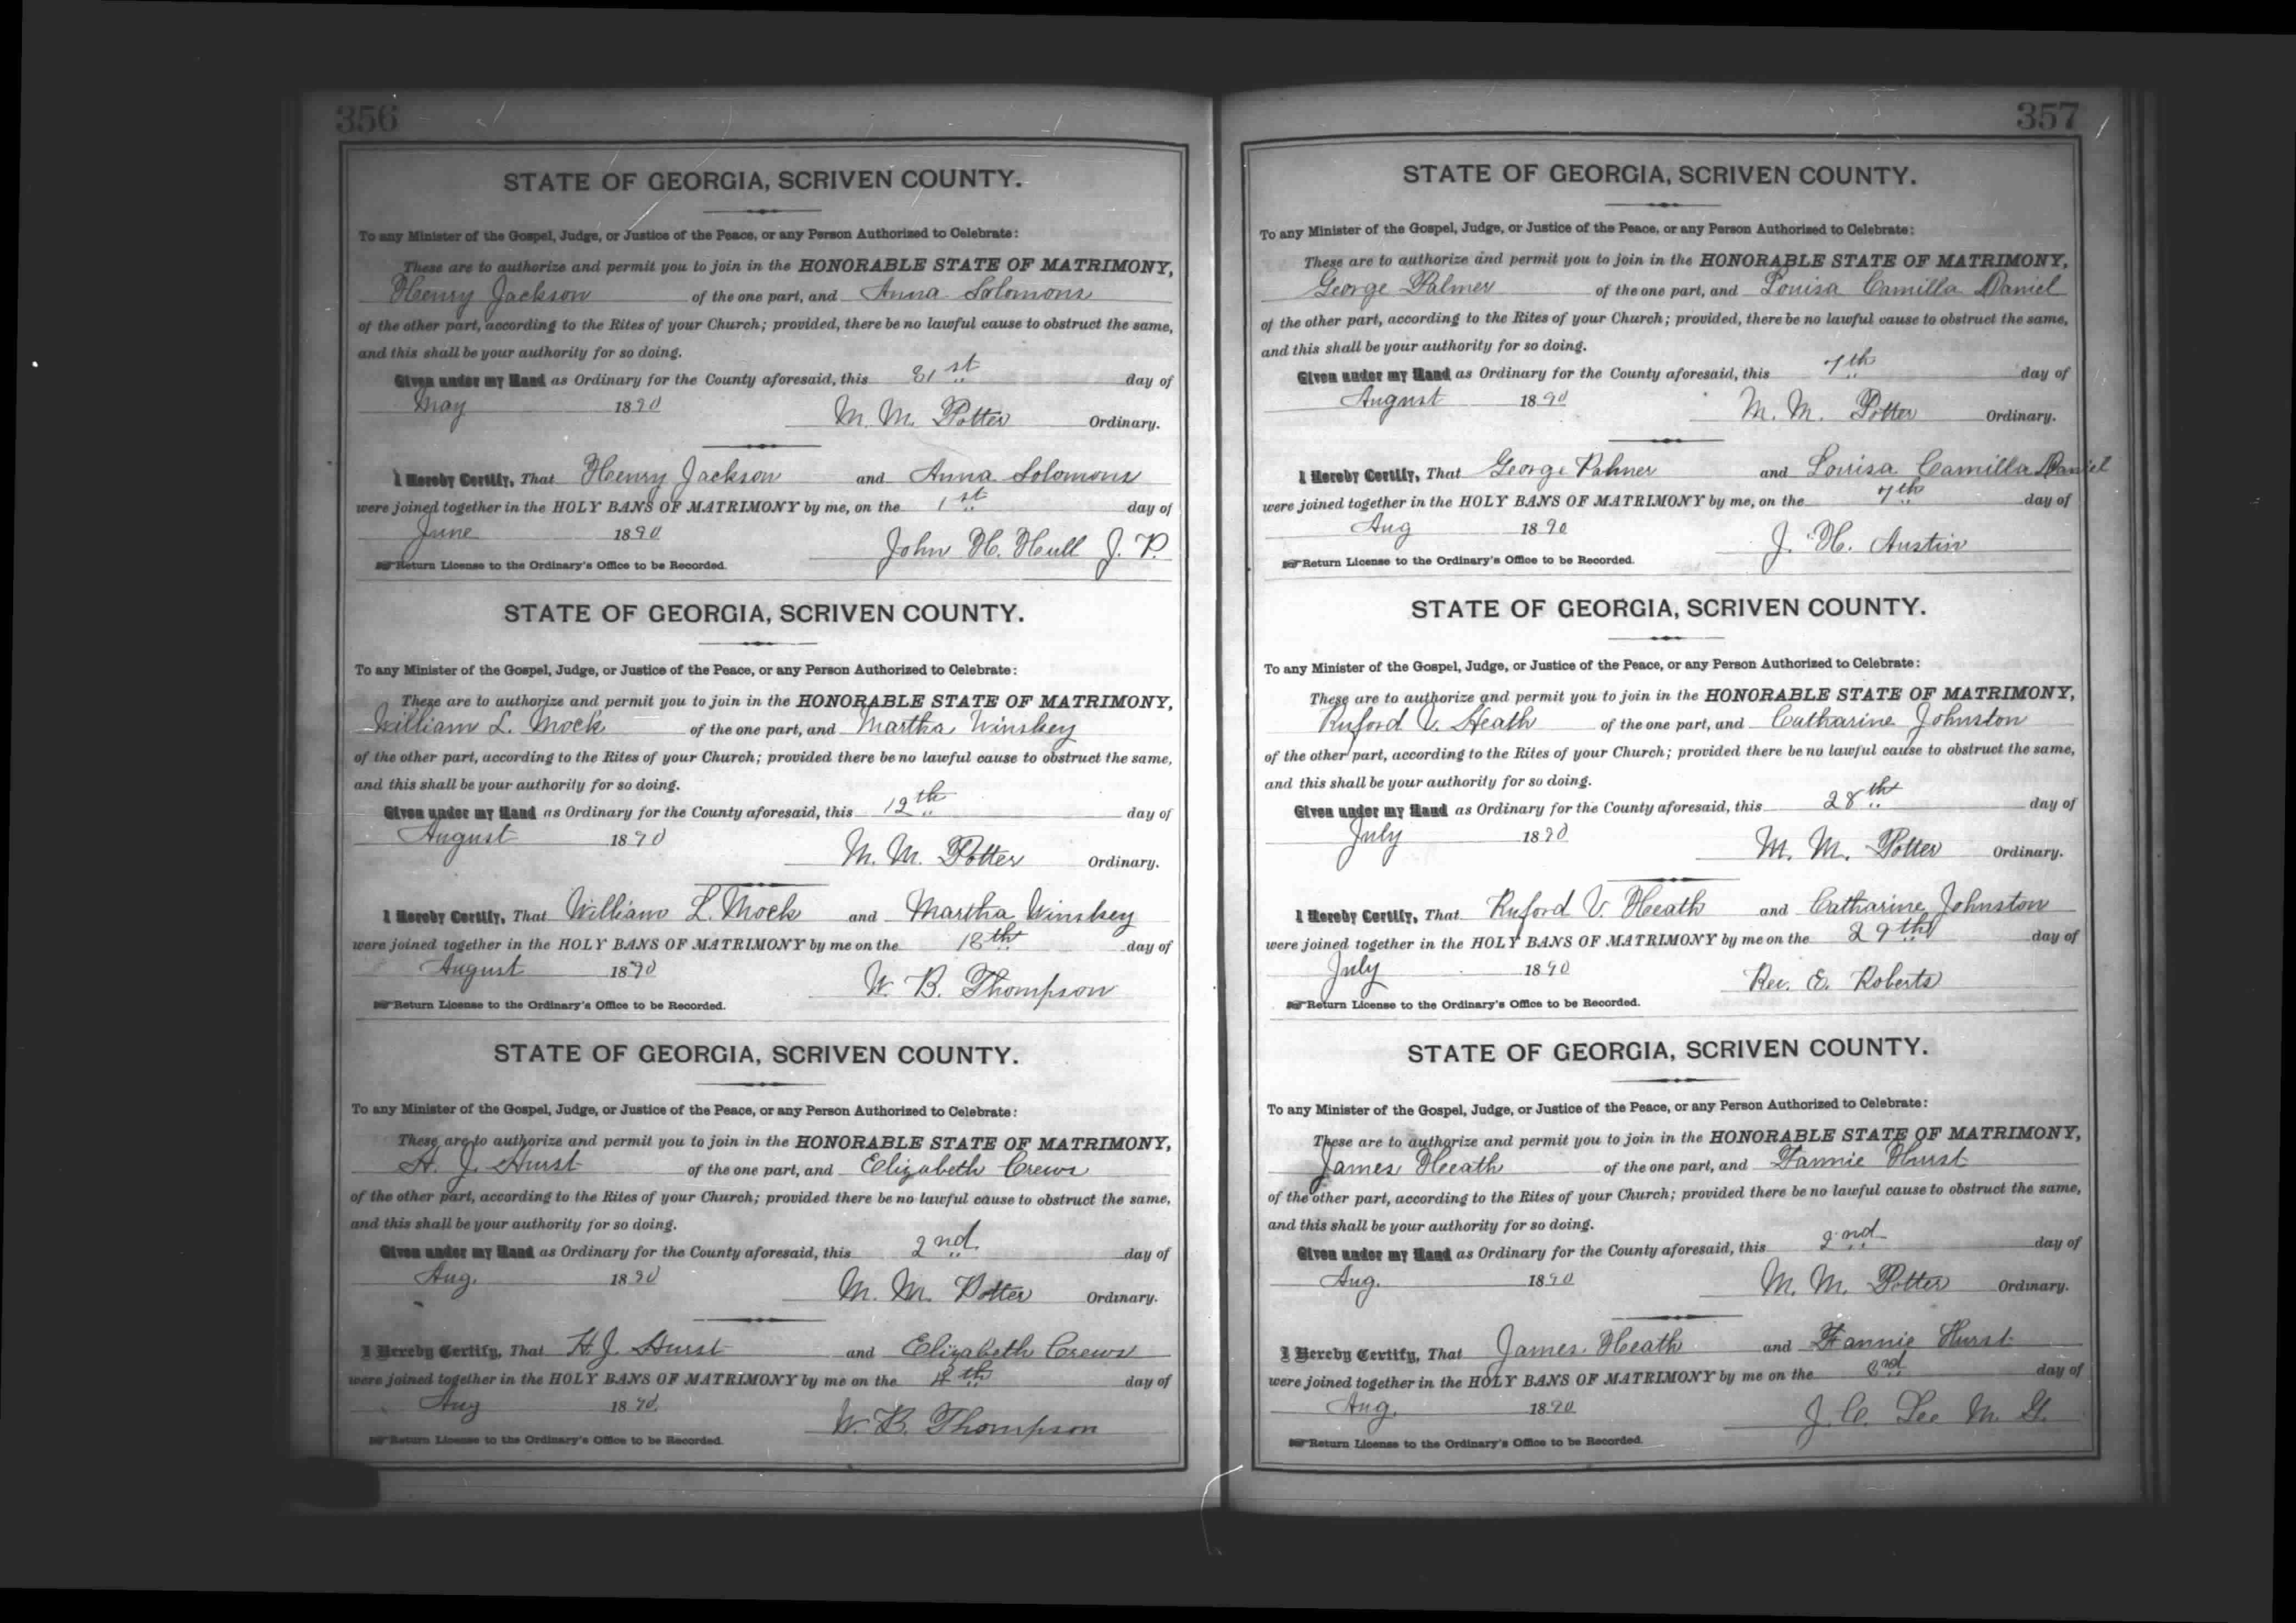 356
STATE OF GEORGIA, SCRIVEN COUNTY.
To any Minister of the Gospel, Judge, or Justice of the Peace, or any Person Authorized to Celebrate:
These are to authorize and permit you to join in the HONORABLE STATE OF MATRIMONY,
Henry Jackson of the one part, and Anna Solomons
of the other part, according to the Rites of your Church; provided, there be no lawful cause to obstruct the same,
and this shall be your authority for so doing.
Given under my Hand as Ordinary for the County aforesaid, this 31st day of
May 1890 M. M. Potter Ordinary.
I Hereby Certify, That Henry Jackson and Anna Solomons
were joined together in the HOLY BANS OF MATRIMONY by me, on the 1st day of
June 1890 John H. Hull J. P.
Return License to the Ordinary's Office to be Recorded.
STATE OF GEORGIA, SCRIVEN COUNTY.
To any Minister of the Gospel, Judge, or Justice of the Peace, or any Person Authorized to Celebrate:
These are to authorize and permit you to join in the HONORABLE STATE OF MATRIMONY,
William L. Mock of the one part, and Martha Winskey
of the other part, according to the Rites of your Church; provided there be no lawful cause to obstruct the same,
and this shall be your authority for so doing.
Given under my Hand as Ordinary for the County aforesaid, this 12th day of
August 1890 M. M. Potter Ordinary.
I Hereby Certify, That William L. Mock and Martha Winskey
were joined together in the HOLY BANS OF MATRIMONY by me on the day of
August 1890 W. B. Thompson
Return License to the Ordinary's Office to be Recorded.
STATE OF GEORGIA, SCRIVEN COUNTY.
To any Minister of the Gospel, Judge, or Justice of the Peace, or any Person Authorized to Celebrate:
These are to authorize and permit you to join in the HONORABLE STATE OF MATRIMONY,
H. J. Hurst of the one part, and Elizabeth Crews
of the other part, according to the Rites of your Church; provided there be no lawful cause to obstruct the same,
and this shall be your authority for so doing.
Given under my Hand as Ordinary for the County aforesaid, this 2nd day of
Aug. 1890 M. M. Potter Ordinary.
I Hereby Certify, That H. J. Hurst and Elizabeth Crews
were joined together in the HOLY BANS OF MATRIMONY by me on the day of
Aug 1890 W. B. Thompson
Return License to the Ordinary's Office to be Recorded.
357
STATE OF GEORGIA, SCRIVEN COUNTY.
To any Minister of the Gospel, Judge, or Justice of the Peace, or any Person Authorized to Celebrate:
These are to authorize and permit you to join in the HONORABLE STATE OF MATRIMONY,
George Palmer of the one part, and Louisa Camilla Daniel
of the other part, according to the Rites of your Church; provided, there be no lawful cause to obstruct the same,
and this shall be your authority for so doing.
Given under my Hand as Ordinary for the County aforesaid, this 7th day of
August 1890 M. M. Potter Ordinary.
I Hereby Certify, That George Palmer and Louisa Camilla Daniel
were joined together in the HOLY BANS OF MATRIMONY by me, on the 7th day of
Aug 1890 J. H. Austin
Return License to the Ordinary's Office to be Recorded.
STATE OF GEORGIA, SCRIVEN COUNTY.
To any Minister of the Gospel, Judge, or Justice of the Peace, or any Person Authorized to Celebrate:
These are to authorize and permit you to join in the HONORABLE STATE OF MATRIMONY,
Ruford V. Heath of the one part, and Catharine Johnston
of the other part, according to the Rites of your Church; provided there be no lawful cause to obstruct the same,
and this shall be your authority for so doing.
Given under my Hand as Ordinary for the County aforesaid, this 28th day of
July 1890 M. M. Potter Ordinary.
I Hereby Certify, That Ruford V. Heath and Catharine Johnston
were joined together in the HOLY BANS OF MATRIMONY by me on the 29th day of
July 1890 Rev. E. Roberts
Return License to the Ordinary's Office to be Recorded.
STATE OF GEORGIA, SCRIVEN COUNTY.
To any Minister of the Gospel, Judge, or Justice of the Peace, or any Person Authorized to Celebrate:
These are to authorize and permit you to join in the HONORABLE STATE OF MATRIMONY,
James Heath of the one part, and Fannie Hurst
of the other part, according to the Rites of your Church; provided there be no lawful cause to obstruct the same,
and this shall be your authority for so doing.
Given under my Hand as Ordinary for the County aforesaid, this 2nd day of
Aug. 1890 M. M. Potter Ordinary.
I Hereby Certify, That James Heath and Fannie Hurst
were joined together in the HOLY BANS OF MATRIMONY by me on the day of
Aug. 1890 J. C. Lee M. G.
Return License to the Ordinary's Office to be Recorded.